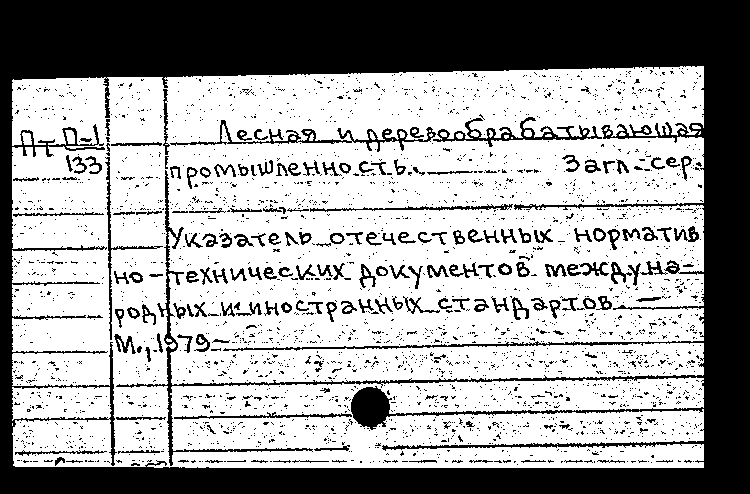 Пт П-1 Лесная и деревообрабатывающая
133 промышленность. Загл. сер.
Указатель отечественных норматив
но-технических документов междуна-
родных и иностранных стандартов. —
М., 1979-